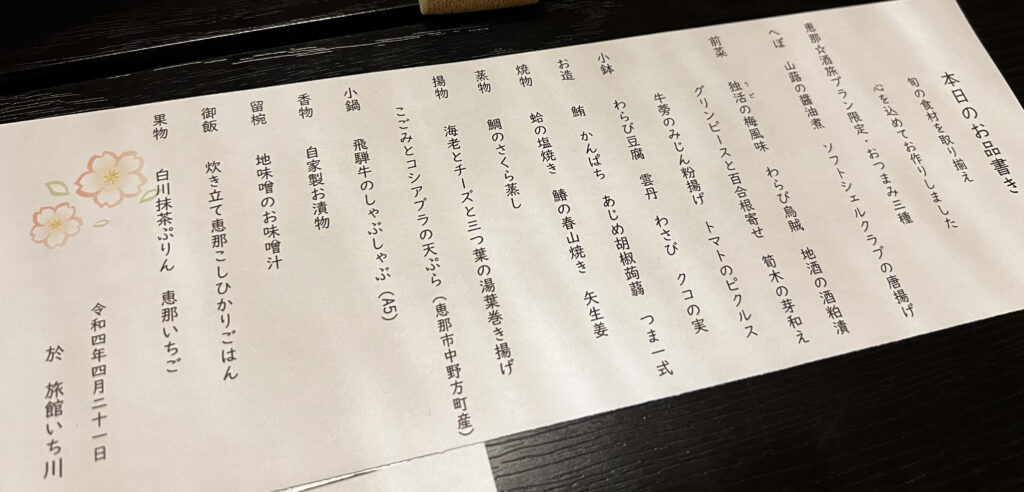 本日のお品書き
旬の食材を取り揃え
心を込めてお作りしました
恵那☆酒旅プラン限定・おつまみ三種
へぼ　山蕗の醤油煮　ソフトシェルクラブの唐揚げ
前菜　独活の梅風味　わらび烏賊　地酒の酒粕漬
うど
グリンピースと百合根寄せ　筍木の芽和え
牛蒡のみじん粉揚げ　トマトのピクルス
小鉢　わらび豆腐　雲丹　わさび　クコの実
お造　鮪　かんぱち　あじめ胡椒蒟蒻　つま一式
焼物　蛤の塩焼き　鰆の春山焼き　矢生姜
蒸物　鯛のさくら蒸し
揚物　海老とチーズと三つ葉の湯葉巻き揚げ
こごみとコシアブラの天ぷら（恵那市中野方町産）
小鍋　飛騨牛のしゃぶしゃぶ（A5）
香物　自家製お漬物
留椀　地味噌のお味噌汁
御飯　炊き立て恵那こしひかりごはん
果物　白川抹茶ぷりん　恵那いちご
令和四年四月二十一日
於　旅館いち川